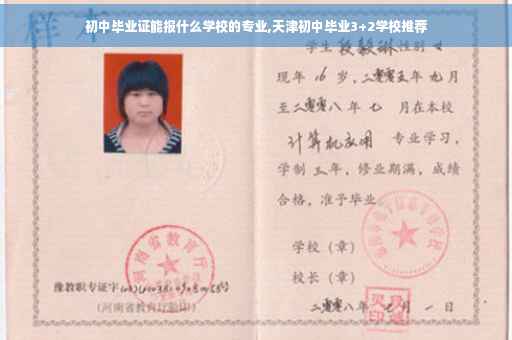 初中毕业证能报什么学校的专业,天津初中毕业3+2学校推荐
样本
学生 段毅琳 性别 女
现年 16 岁，二零零五年 九月
至二零零八年 七 月在本校
计算机应用 专业学习，
学制 三 年，修业期满，成绩
合格，准予毕业
学校（章）
校长（章）
河南省教育厅
豫教职专证字
(河南省教育厅验印)
二零零八年 月 一 日